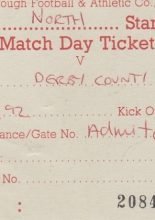 ough Football & Athletic Co.,
NORTH Stan
Match Day Ticket
V
DERBY COUNTY
.92 Kick O
ance/Gate No. Admit
No.
: 2084